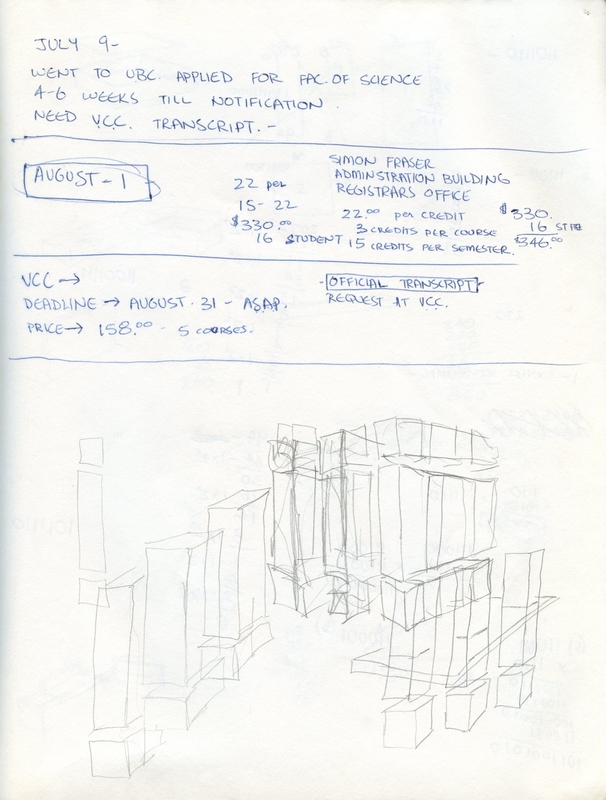 JULY 9-
WENT TO UBC. APPLIED FOR FAC. OF SCIENCE
4-6 WEEKS TILL NOTIFICATION.
NEED V.C.C. TRANSCRIPT.-
AUGUST-1
22 per
15-22
$330.00
16 STUDENT
SIMON FRASER
ADMINSTRATION BUILDING
REGISTRARS OFFICE
22.00 per CREDIT
3 CREDITS PER COURSE
15 CREDITS PER SEMESTER.
$330.
16
$346.00
VCC →
DEADLINE → AUGUST. 31 - ASAP.
PRICE → 158.00 - 5 COURSES.
- OFFICIAL TRANSCRIPT -
REQUEST AT VCC.